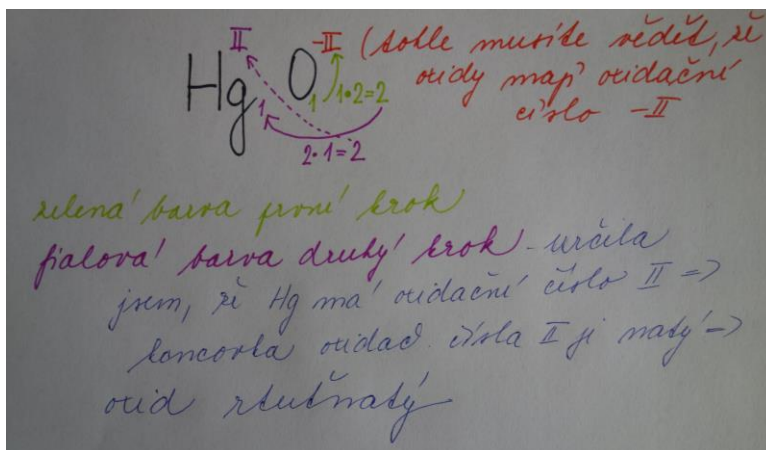 II -II (tohle musíte vědět, že
Hg O oxidy mají oxidační
1 1 1•2=2 číslo -II
2•1=2
zelená barva první krok
fialová barva druhý krok - určila
jsem, že Hg má oxidační číslo II =>
koncovka oxidač. čísla II je natý ->
oxid rtuťnatý